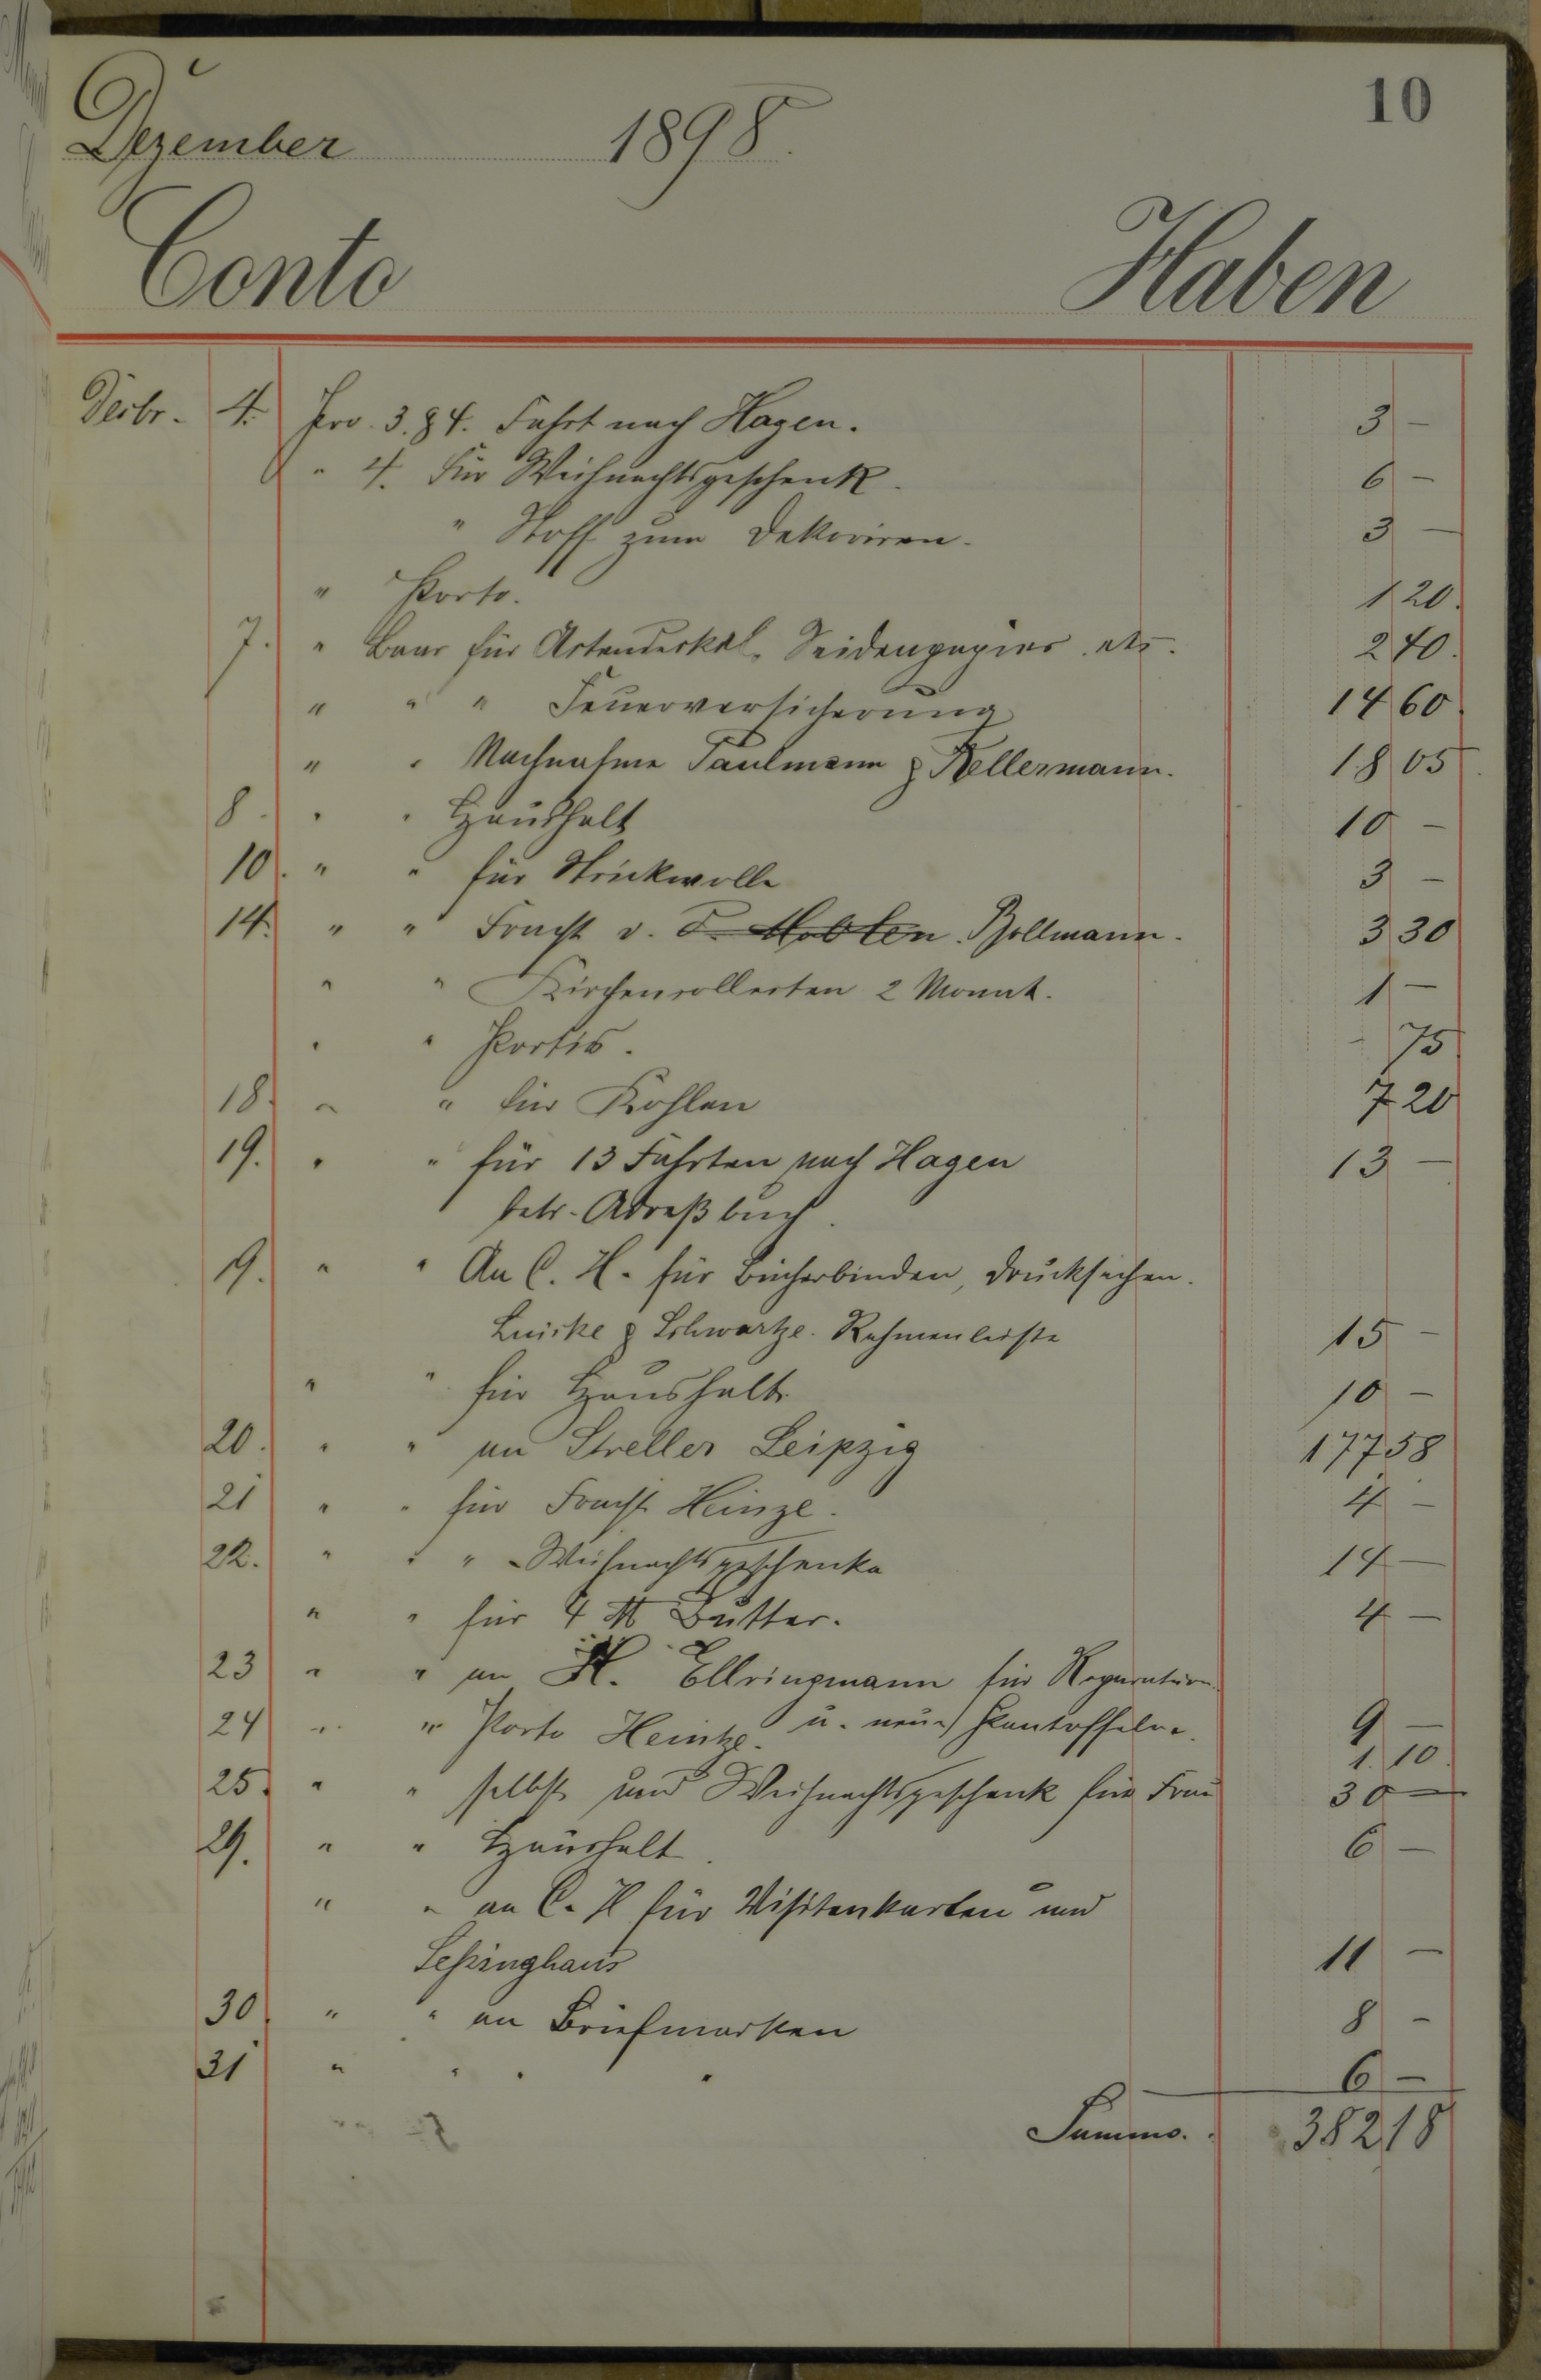 10
Dezember 1898.
Conto Haben
Dezbr. 4. Pro. 3. & 4. Fahrt nach Hagen. 3 –
" 4. Für Weihnachtsgeschenk. 6 –
" Stoff zum Dekoriren. 3 –
" Porto. 1 20.
7. " Baar für Actendeckel, Seidenpapier etc. 2 40.
" " " Feuerversicherung 14 60.
" " Nachnahme Paulmann & Kellermann. 18 05
8. " " Haushalt 10 –
10. " " für Strickwolle 3 –
14. " " Fracht v. Bollmann. 3 30
" " Kirchencollecten 2 Monat. 1 –
" " Portis. – 75
18. " " für Kohlen 7 20
19. " " für 13 Fahrten nach Hagen 13 –
betr. Adreßbuch.
19. " " An C. H. für Bücherbinden, Drucksachen.
Luicke & Schwartze. Rahmenleiste 15 –
" " für Haushalt 10 –
20. " " an Streller Leipzig 177 58
21 " " für Fracht Heinze. 4 –
22. " " " Weihnachtsgeschenke 14 –
" " für 4 ℔ Butter. 4 –
23 " " an H. Ellringmann für Reparatur
u. neue Pantoffeln. 9 –
24 " " Porto Heintze. 1. 10.
25. " " selbst und Weihnachtsgeschenk für Frau 30 –
29. " " Haushalt. 6 –
" " an C. H für Visitenkarten und
Seßinghaus 11 –
30. " " an Briefmarken 8 –
31 " " " " 6 –
Summa. 382 18